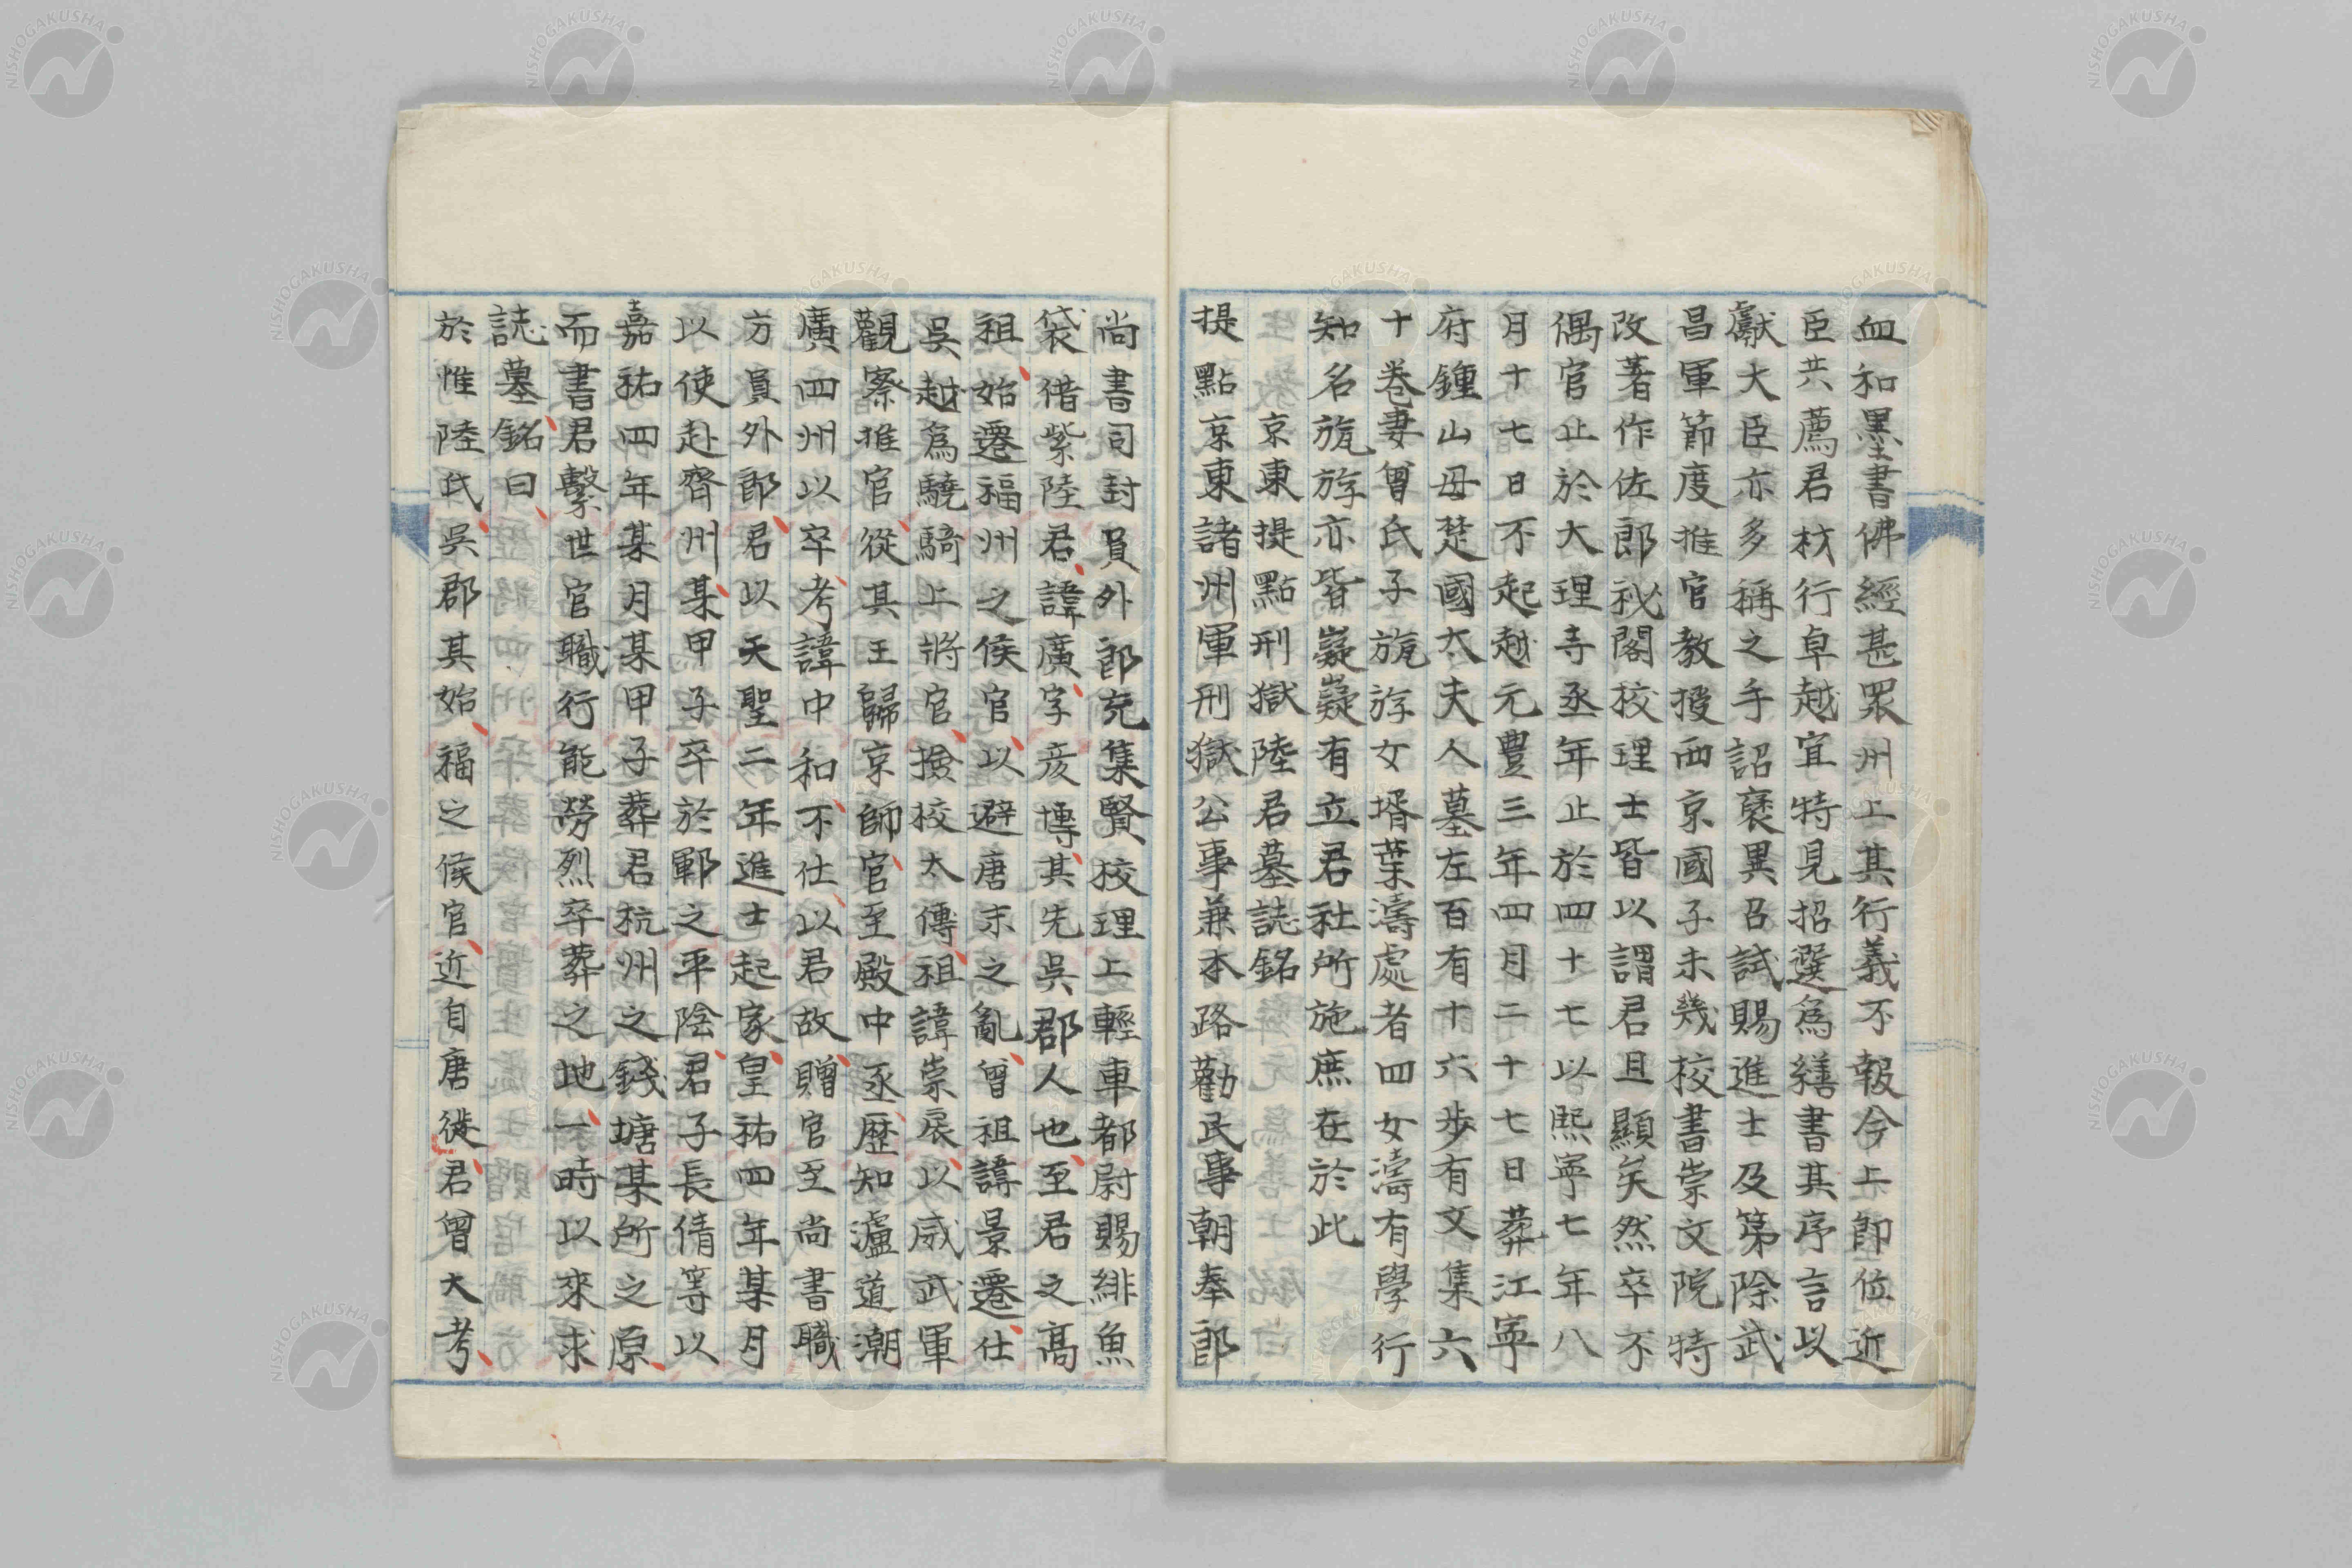 血和墨書佛經甚眾州上其行義不報今上即位近
臣共薦君材行卓越宜特見招選爲繕書其序言以
獻大臣亦多稱之手詔襃異召試賜進士及第除武
昌軍節度推官教授西京國子未幾校書崇文院特
改著作佐郎祕閣校理士皆以謂君且顯矣然卒不
偶官止於大理寺丞年止於四十七以熙寧七年八
月十七日不起越元豊三年四月二十七日葬江寧
府鍾山母楚國太夫人墓左百有十六步有文集六
十卷妻曾氏子旊斿女壻葉濤處者四女濤有學行
知名旊斿亦皆嶷嶷有立君社所施庶在於此
京東提點刑獄陸君墓誌銘
提點京東諸州軍刑獄公事兼本路勸民事朝奉郎
尚書司封員外郎充集賢校理上輕車都尉賜緋魚
袋借紫陸君諱廣字彦博其先吳郡人也至君之髙
祖始遷福州之候官以避唐末之亂曾祖諱景遷仕
吳越爲驍騎上將官撿校太傅祖諱崇扆以威武軍
觀察推官從其王歸京師官至殿中丞歷知瀘道潮
廣四州以卒考諱中和不仕以君故贈官至尚書職
方員外郎君以天聖二年進士起家皇祐四年某月
以使赴齊州某甲子卒於鄆之平陰君子長倩等以
嘉祐四年某月某甲子葬君杭州之錢塘某所之原
而書君繫世官職行能勞烈卒葬之地一時以來求
誌墓銘曰
於惟陸氏吳郡其始福之候官近自唐徙君曾大考
NISHOGAKUSHA